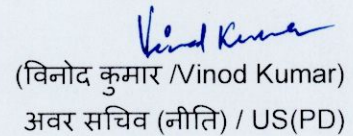 Vinod Kumar
(विनोद कुमार /Vinod Kumar)
अवर सचिव (नीति) / US(PD)